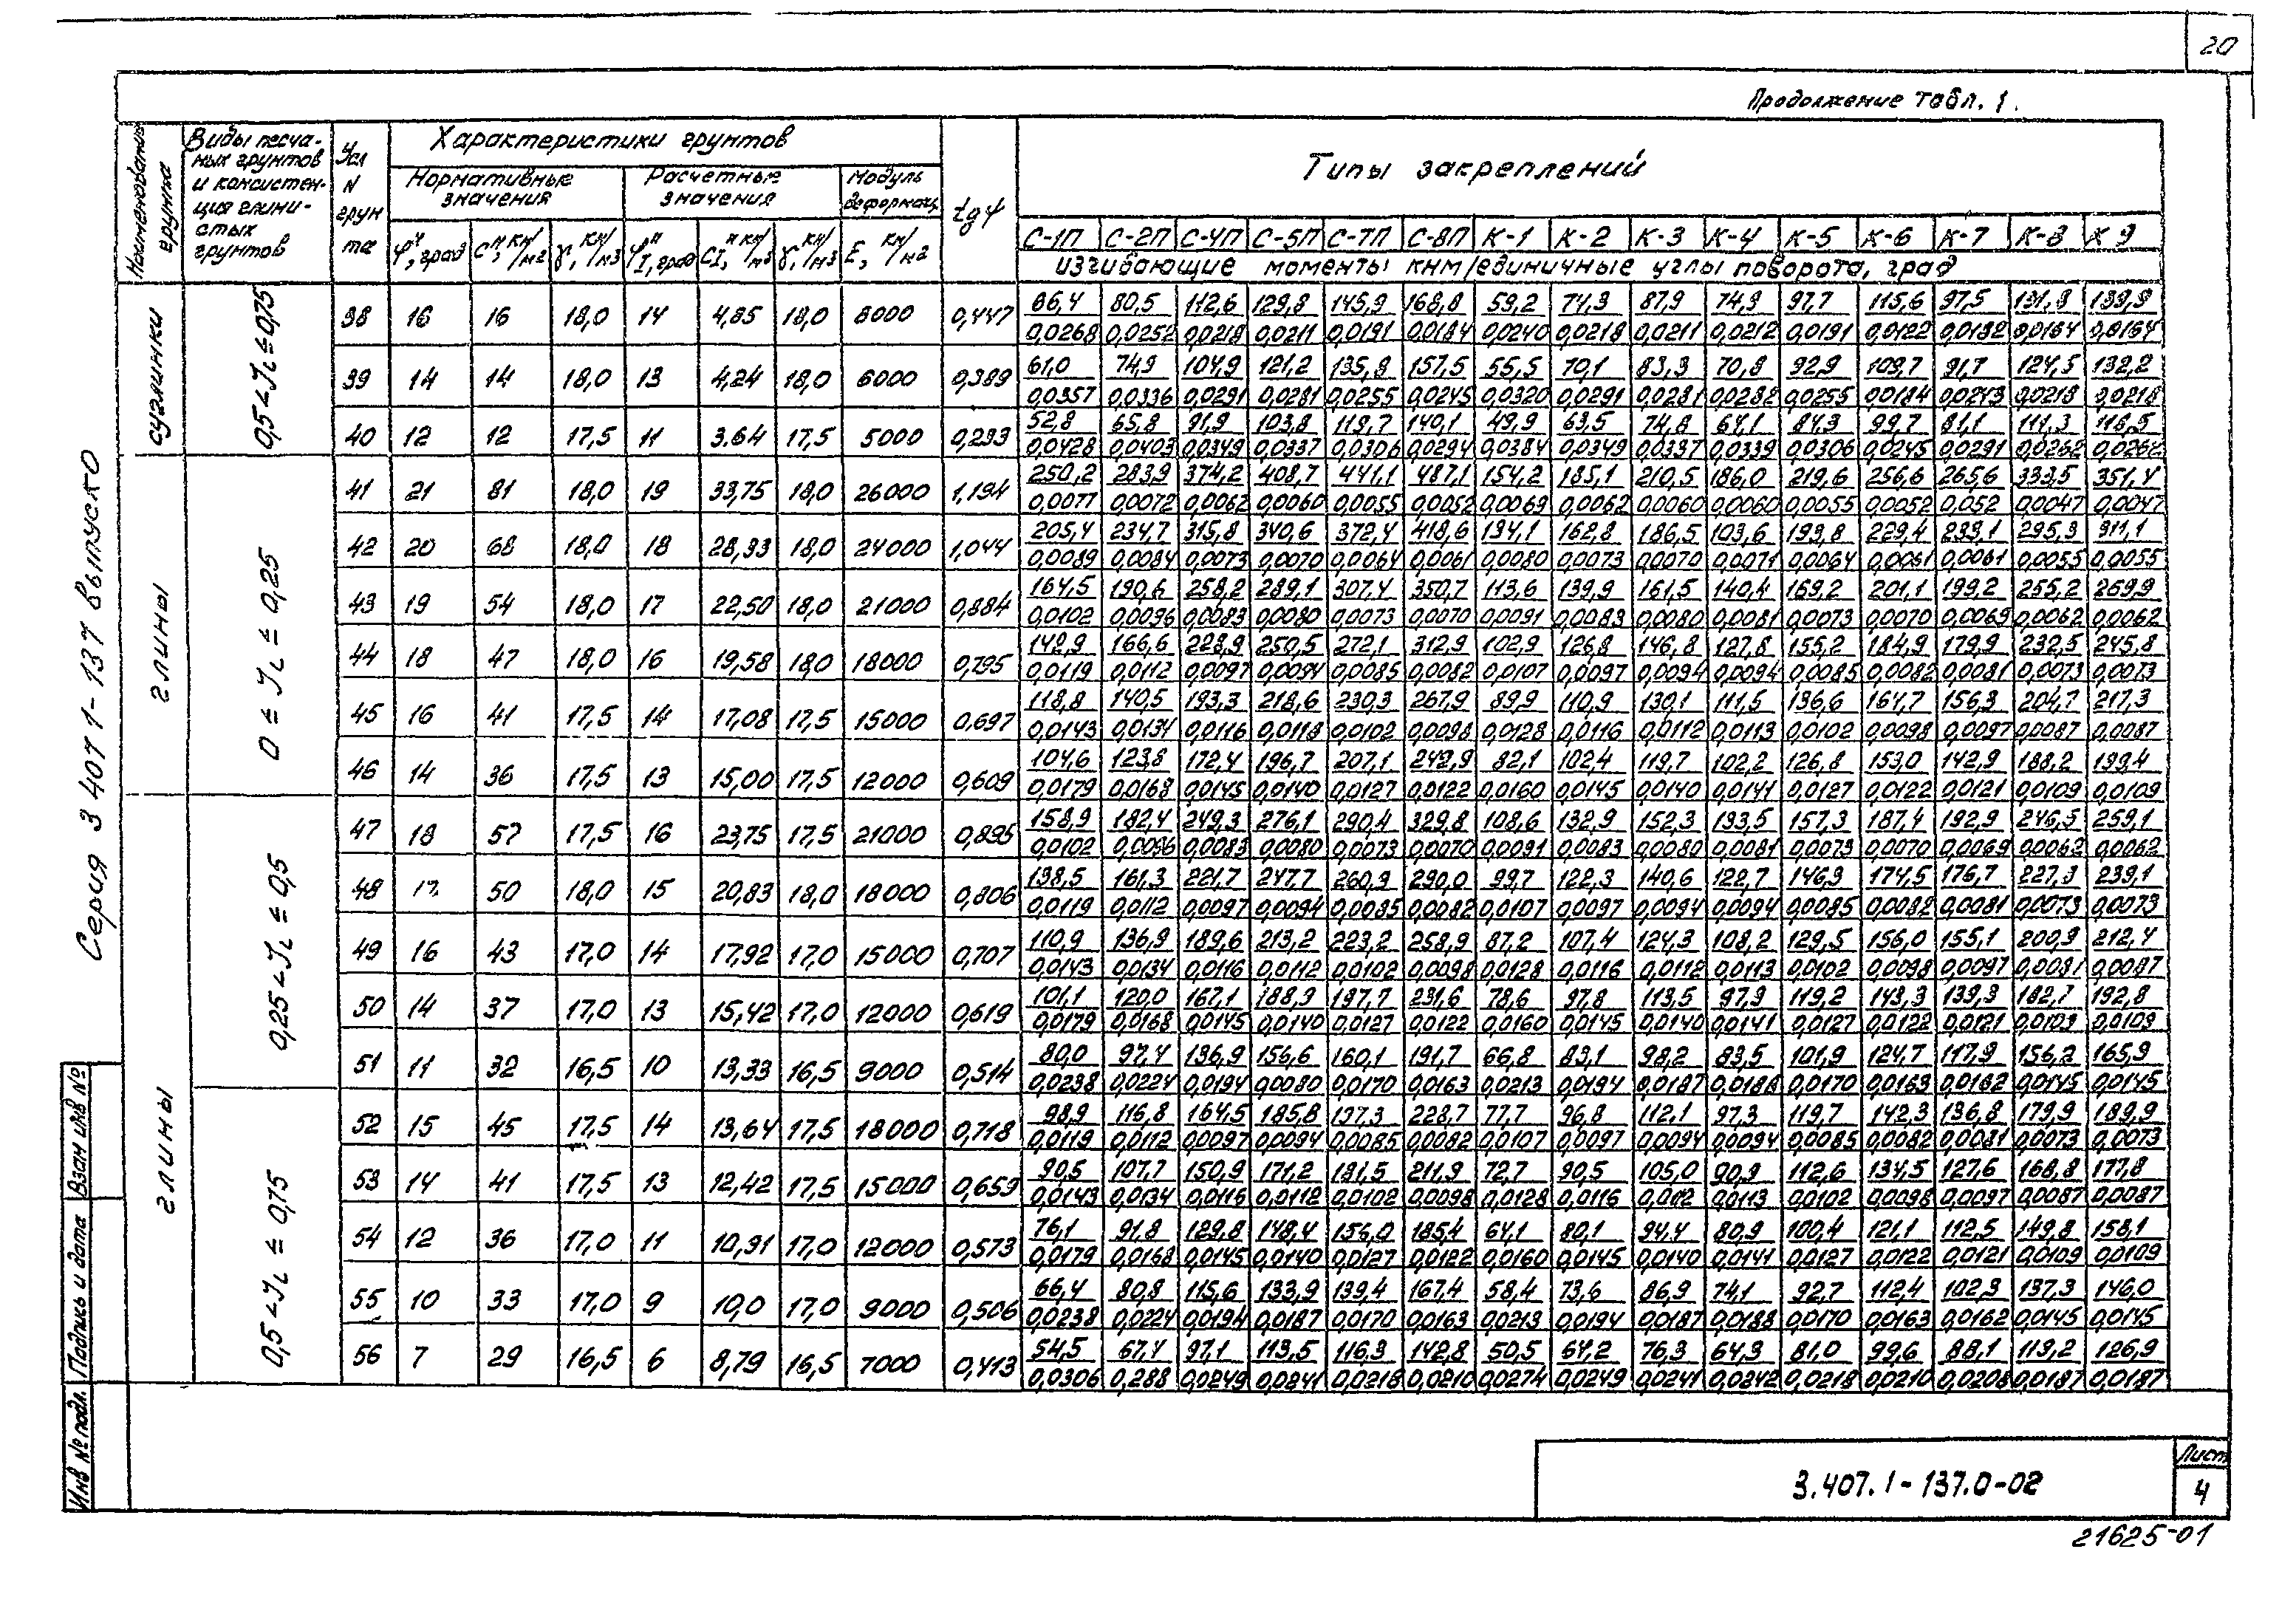 20
Продолжение табл. 1.
Наименование грунта
Виды песча-
ных грунтов
и консистен-
ция глини-
стых
грунтов
Усл
N
грун
та
Характеристики грунтов
Нормативные значения
Расчетные значения
Модуль деформац.
φᴴ, град
Cᴴ, кН/м2
γ, кН/м3
φIᴴ, град
CIᴴ, кН/м3
γ, кН/м3
E, кН/м2
tgψ
Типы закреплений
С-1П С-2П С-4П С-5П С-7П С-8П К-1 К-2 К-3 К-4 К-5 К-6 К-7 К-8 К 9
изгибающие моменты кнм/единичные углы поворота, град
суглинки
0,5 < JL ≤ 0,75
38 16 16 18,0 14 4,85 18,0 8000 0,447
86,4 80,5 112,6 129,8 145,9 168,8 59,2 74,9 87,9 74,9 97,7 115,6 97,5 131,8 139,9
0,0268 0,0252 0,0218 0,0211 0,0191 0,0184 0,0240 0,0218 0,0211 0,0212 0,0191 0,0122 0,0182 0,0164 0,0164
39 14 14 18,0 13 4,24 18,0 6000 0,389
61,0 74,9 104,9 121,2 135,8 157,5 55,5 70,1 83,3 70,8 92,9 109,7 91,7 124,5 132,2
0,0357 0,0336 0,0291 0,0281 0,0255 0,0245 0,0320 0,0291 0,0281 0,0282 0,0255 0,0184 0,0243 0,0218 0,0218
40 12 12 17,5 11 3,64 17,5 5000 0,293
52,8 65,8 91,9 103,8 119,7 140,1 49,9 63,5 74,8 64,1 84,3 99,7 81,1 111,3 118,5
0,0428 0,0403 0,0349 0,0337 0,0306 0,0294 0,0384 0,0349 0,0337 0,0339 0,0306 0,0245 0,0291 0,0262 0,0262
глины
0 ≤ JL ≤ 0,25
41 21 81 18,0 19 33,75 18,0 26000 1,194
250,2 283,9 374,2 408,7 441,1 487,1 154,2 185,1 210,5 186,0 219,6 256,6 265,6 333,5 351,4
0,0077 0,0072 0,0062 0,0060 0,0055 0,0052 0,0069 0,0062 0,0060 0,0060 0,0055 0,0052 0,052 0,0047 0,0047
42 20 68 18,0 18 28,33 18,0 24000 1,044
205,4 234,7 315,8 340,6 372,4 418,6 134,1 162,8 186,5 103,6 193,8 229,4 233,1 295,3 311,1
0,0089 0,0084 0,0073 0,0070 0,0064 0,0061 0,0080 0,0073 0,0070 0,0071 0,0064 0,0061 0,0061 0,0055 0,0055
43 19 54 18,0 17 22,50 18,0 21000 0,884
164,5 190,6 258,2 289,1 307,4 350,7 113,6 139,9 161,5 140,4 169,2 201,1 199,2 255,2 269,9
0,0102 0,0096 0,0083 0,0080 0,0073 0,0070 0,0091 0,0083 0,0080 0,0081 0,0073 0,0070 0,0069 0,0062 0,0062
44 18 47 18,0 16 19,58 18,0 18000 0,795
142,9 166,6 228,9 250,5 272,1 312,9 102,9 126,8 146,8 127,8 155,2 184,9 179,9 232,5 245,8
0,0119 0,0112 0,0097 0,0094 0,0085 0,0082 0,0107 0,0097 0,0094 0,0094 0,0085 0,0082 0,0081 0,0073 0,0073
45 16 41 17,5 14 17,08 17,5 15000 0,697
118,8 140,5 193,3 218,6 230,3 267,9 89,9 110,9 130,1 111,5 136,6 164,7 156,3 204,7 217,3
0,0143 0,0134 0,0116 0,0118 0,0102 0,0098 0,0128 0,0116 0,0112 0,0113 0,0102 0,0098 0,0097 0,0087 0,0087
46 14 36 17,5 13 15,00 17,5 12000 0,609
104,6 123,8 172,4 196,7 207,1 242,9 82,1 102,4 119,7 102,2 126,8 153,0 142,9 188,2 199,4
0,0179 0,0168 0,0145 0,0140 0,0127 0,0122 0,0160 0,0145 0,0140 0,0141 0,0127 0,0122 0,0121 0,0109 0,0109
глины
0,25 < JL ≤ 0,5
47 18 57 17,5 16 23,75 17,5 21000 0,895
158,9 182,4 249,3 276,1 290,4 329,8 108,6 132,9 152,3 133,5 157,3 187,4 192,9 246,5 259,1
0,0102 0,0096 0,0083 0,0080 0,0073 0,0070 0,0091 0,0083 0,0080 0,0081 0,0073 0,0070 0,0069 0,0062 0,0062
48 17 50 18,0 15 20,83 18,0 18000 0,806
138,5 161,3 221,7 247,7 260,9 290,0 99,7 122,3 140,6 122,7 146,3 174,5 176,7 227,3 239,1
0,0119 0,0112 0,0097 0,0094 0,0085 0,0082 0,0107 0,0097 0,0094 0,0094 0,0085 0,0082 0,0081 0,0073 0,0073
49 16 43 17,0 14 17,92 17,0 15000 0,707
110,9 136,9 189,6 213,2 223,2 258,9 87,2 107,4 124,3 108,2 129,5 156,0 155,1 200,9 212,4
0,0143 0,0134 0,0116 0,0112 0,0102 0,0098 0,0128 0,0116 0,0112 0,0113 0,0102 0,0098 0,0097 0,0087 0,0087
50 14 37 17,0 13 15,42 17,0 12000 0,619
101,1 120,0 167,1 188,9 197,7 231,6 78,6 97,8 113,5 97,9 119,2 143,3 139,3 182,7 192,8
0,0179 0,0168 0,0145 0,0140 0,0127 0,0122 0,0160 0,0145 0,0140 0,0141 0,0127 0,0122 0,0121 0,0109 0,0109
51 11 32 16,5 10 13,33 16,5 9000 0,514
80,0 97,4 136,9 156,6 160,1 191,7 66,8 83,1 98,2 83,5 101,9 124,7 117,9 156,2 165,9
0,0238 0,0224 0,0194 0,0080 0,0170 0,0163 0,0213 0,0194 0,0187 0,0188 0,0170 0,0163 0,0162 0,0145 0,0145
0,5 < JL ≤ 0,75
52 15 45 17,5 14 13,64 17,5 18000 0,718
98,9 116,8 164,5 185,8 197,3 228,7 77,7 96,8 112,1 97,3 119,7 142,3 136,8 179,9 189,9
0,0119 0,0112 0,0097 0,0094 0,0085 0,0082 0,0107 0,0097 0,0094 0,0094 0,0085 0,0082 0,0081 0,0073 0,0073
53 14 41 17,5 13 12,42 17,5 15000 0,659
90,5 107,7 150,9 171,2 181,5 211,9 72,7 90,5 105,0 90,9 112,6 134,5 127,6 168,8 177,8
0,0143 0,0134 0,0116 0,0112 0,0102 0,0098 0,0128 0,0116 0,012 0,0113 0,0102 0,0098 0,0097 0,0087 0,0087
54 12 36 17,0 11 10,91 17,0 12000 0,573
76,1 91,8 129,8 148,4 156,0 185,4 64,1 80,1 94,4 80,9 100,4 121,1 112,5 149,8 158,1
0,0179 0,0168 0,0145 0,0140 0,0127 0,0122 0,0160 0,0145 0,0140 0,0141 0,0127 0,0122 0,0121 0,0109 0,0109
55 10 33 17,0 9 10,0 17,0 9000 0,506
66,4 80,8 115,6 133,9 139,4 167,4 58,4 73,6 86,9 74,1 92,7 112,4 102,9 137,3 146,0
0,0238 0,0224 0,0194 0,0187 0,0170 0,0163 0,0213 0,0194 0,0187 0,0188 0,0170 0,0163 0,0162 0,0145 0,0145
56 7 29 16,5 6 8,79 16,5 7000 0,413
54,5 67,4 97,1 113,5 116,3 142,8 50,5 64,2 76,3 64,3 81,0 99,6 88,1 119,2 126,9
0,0306 0,288 0,0249 0,0241 0,0218 0,0210 0,0274 0,0249 0,0241 0,0242 0,0218 0,0210 0,0208 0,0187 0,0187
Серия 3 407 1-137 выпуск0
Взам инв №
Подпись и дата
Инв № подл.
3.407.1-137.0-02
Лист
4
21625-01